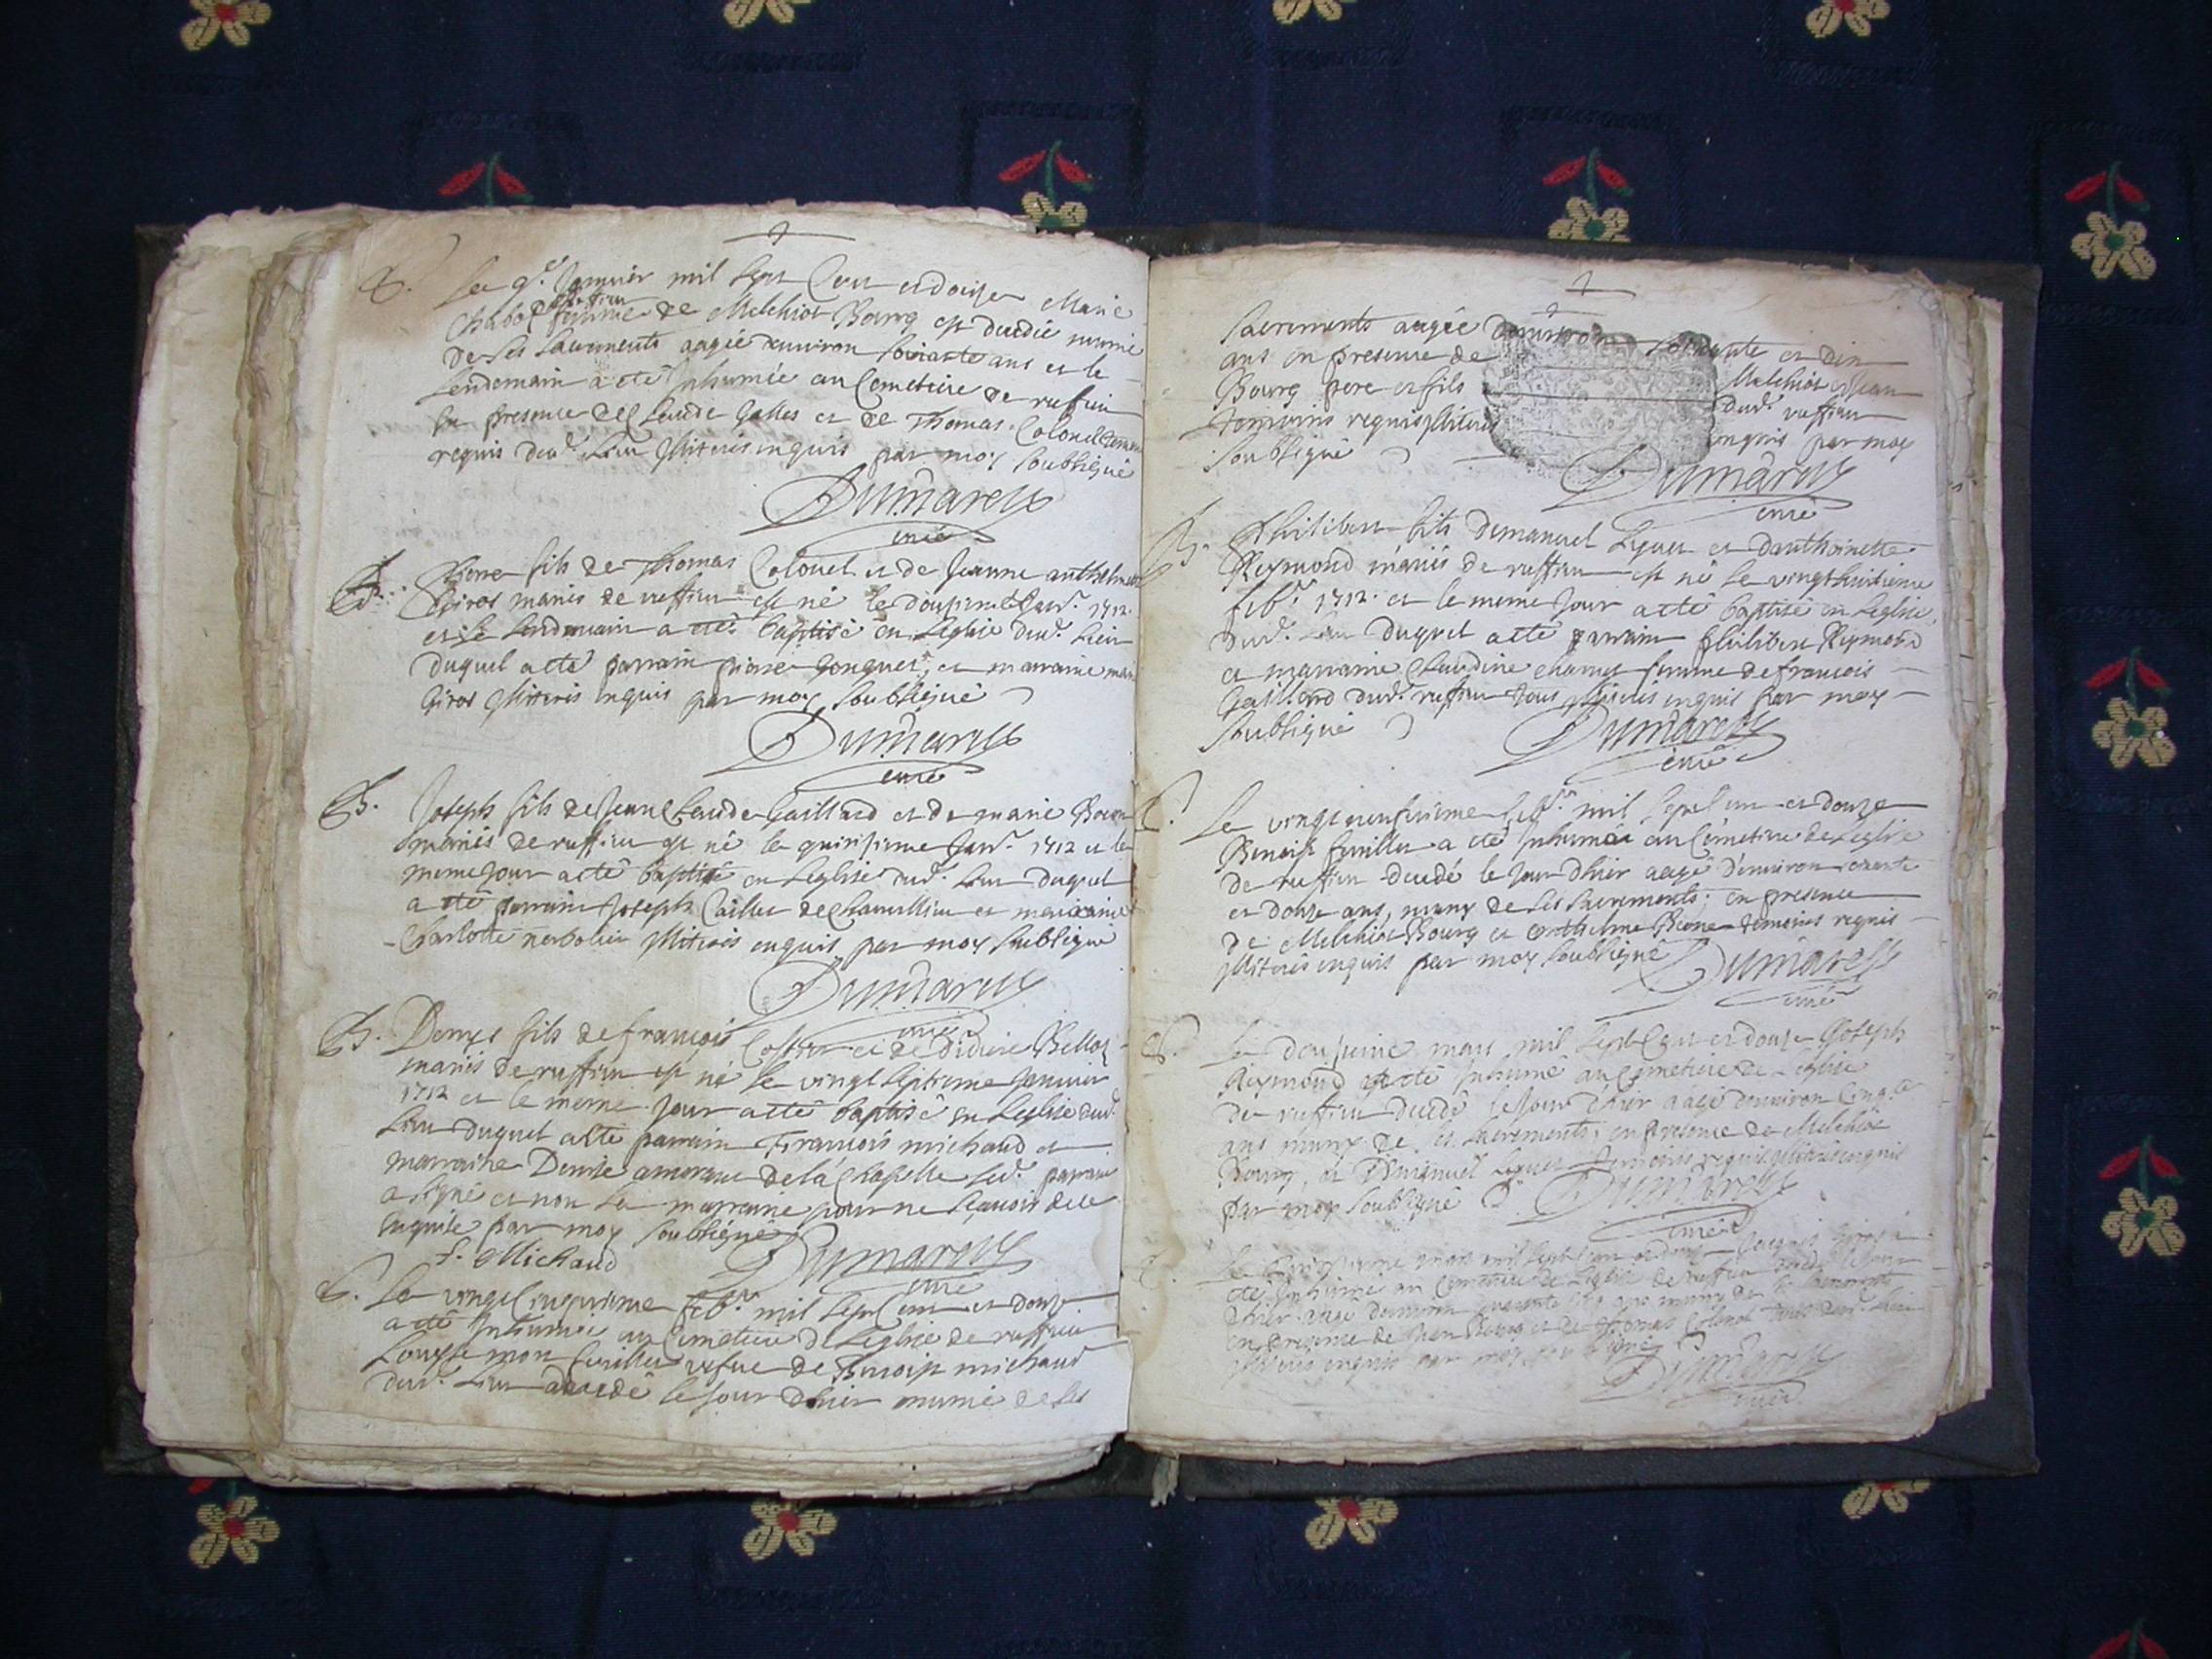 Le 9e Janvier mil sept Cent et douze Marie
Chabod de ruffieu femme de Melchiot Bourg est decedée munie
de ses sacrements aagée denviron soixante ans et le
lendemain a eté Inhumée au Cemetiere de ruffieu
en presence de Claude Galles et de Thomas Colonel temoins
requis dud. Lieu Illiterés enquis par moy soubsigné
Dumarest
curé
B. Pierre fils de Thomas Colonel et de Jeanne anthelmette
Giros mariés de ruffieu est né le douzieme Janv. 1712.
et le lendemain a eté baptisé en Leglise dud. Lieu
duquel a eté parrain pierre Gonguet, et marraine marie
Giros Illiterés enquis par moy soubsigné
Dumarest
curé
B. Joseph fils de Jean Claude Gaillard et de marie Bourg
mariés de ruffieu est né le quinzieme Janv. 1712 et le
meme Jour a eté baptisé en Leglise dud. Lieu duquel
a eté parrain Joseph Cailles de Chavillieu et marraine
Charlotte Illiterés enquis par moy soubsigné
Dumarest
curé
B. Denys fils de francois et de Didiere Bellod
mariés de ruffieu est né le vingt septieme Janvier
1712 et le meme Jour a eté baptisé en Leglise dud.
Lieu duquel a eté parrain Francois michaud et
marraine Denise de la Chapelle led. parrain
a signé et non la marraine pour ne scavoir de ce
enquise par moy soubsigné
f. Michaud Dumarest
curé
S. Le vingt Cinquieme feb. mil sept Cent et douze
a eté Inhumée au Cemetiere de Leglise de ruffieu
Louyse mon feuillet vefue de Benoist michaud
dud. Lieu decedée le Jour dhier munie de ses
sacrements aagée denviron soixante et dix
ans en presence de Melchiot et Jean
Bourg pere et fils dud. ruffieu
temoins requis Illiterés enquis par moy
soubsigné
Dumarest
curé
B. Philibert fils demanuel Liques et danthoinette
Reymond mariés de ruffieu est né le vingt huitieme
feb. 1712. et le meme Jour a eté baptisé en Leglise
dud. Lieu duquel a eté parrain philibert Reymond
et marraine Claudine femme de francois
Gaillard dud. ruffieu tous Illiterés enquis par moy
soubsigné
Dumarest
curé
S. Le vingt neufvieme feb. mil sept Cent et douze
Benoist feuillet a eté Inhumé au Cemetiere de Leglise
de ruffieu decedé le Jour dhier aagé denviron
et douze ans, muny de ses sacrements, en presence
de Melchiot Bourg et temoins requis
Illiterés enquis par moy soubsigné Dumarest
curé
S. Le deuxieme mars mil sept Cent et douze Joseph
Reymond a eté Inhumé au Cemetiere de Leglise
de ruffieu decedé le Jour dhier aagé denviron Cinq.te
ans muny de ses sacrements, en presence de Melchiot
Bourg, et Emanuel Liques temoins requis Illiterés enquis
par moy soubsigné Dumarest
curé
Le mars mil sept Cent et douze Jacques Giros a
eté Inhumé au Cemetiere de Leglise de ruffieu decedé le Jour
dhier aagé denviron quarante ans muny de ses sacrements
en presence de Jean Bourg et de Thomas Colonel tous dud. Lieu
Illiterés enquis par moy soubsigné
Dumarest
curé